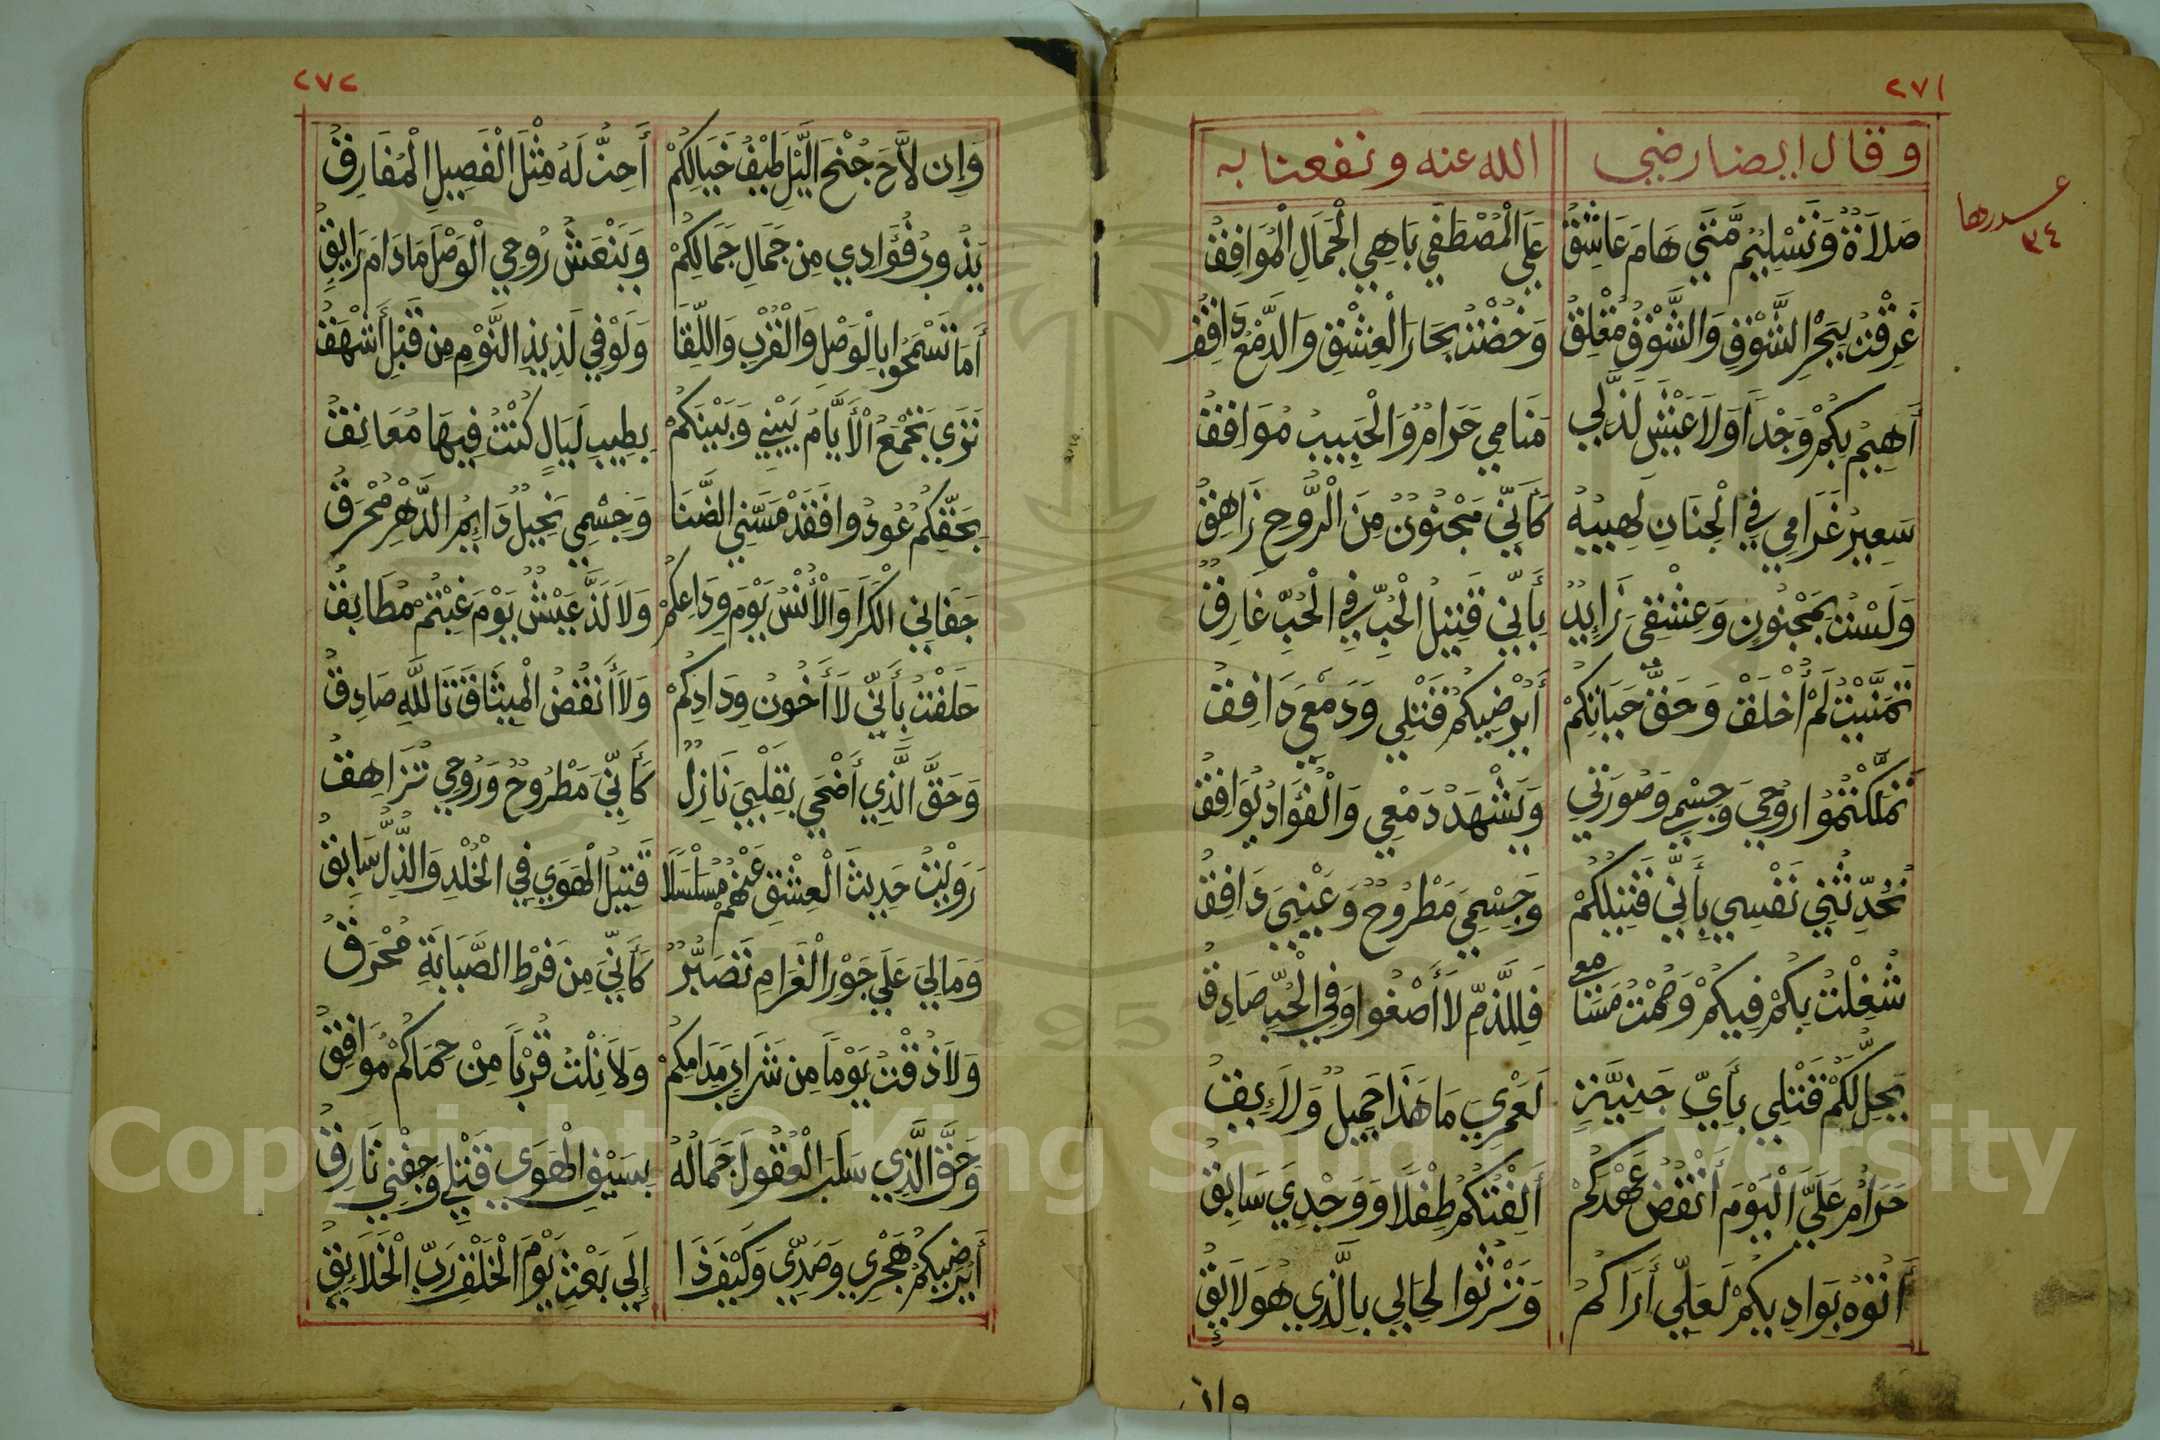 ٢٧١
وقال ايضا رضي الله عنه ونفعنا به
عددها
٣٤
صَلَاةٌ وَتَسْلِيْمٌ مَّتَي هَامَ عَاشِقُ عَلَي الْمُصْطَفَي بَاهِي الْجَمَالِ الْمُوَافِقُ
غَرِقْتُ بِبَحْرِ الشَّوْقِ وَالشَّوْقُ مُقْلِقُ وَخُضْتُ بِحَارَ الْعِشْقِ وَالدَّمْعُ دَافِقُ
أَهِيْمُ بِكُمْ وَجْدَاً وَلَا عَيْشَ لَذَّلِي مَنَامِي حَرَامٌ وَالْحَبِيبُ مُوَافِقُ
سَعِيْرُ غَرَامِي فِي الْجِنَانِ لَهِيْبُهُ كَأَنِّي مَجْنُوْنٌ مِنَ الرَّوْحِ زَاهِقُ
وَلَسْتُ بِمَجْنُوْنٍ وَعِشْقِيَ زَايِدٌ بِأَنِّي قَتِيْلُ الْحُبِّ فِي الْحُبِّ غَارِقُ
تَمَنَّيْتُ لَمْ أُخْلَقْ وَحَقِّ حَيَاتِكُمْ أَيُرْضِيْكُمُ قَتْلِي وَدَمْعِي دَافِقُ
تَمَلَّكْتُمُوا رُوْحِيَ وَجِسْمِي وَصُوْرَتِي وَيَشْهَدُ دَمْعِي وَالْفُؤَادُ يُوَافِقُ
تُحَدِّثُنِي نَفْسِي بِأَنِّي قَتِيْلُكُمْ وَجِسْمِيَ مَطْرُوحٌ وَعَيْنِيَ دَافِقُ
شُغِلْتُ بِكُمْ فِيْكُمْ وَصُمْتُ مَسَامِعِي فَلِلذَّمِّ لَا أَصْغُوا وَفِي الْحُبِّ صَادِقُ
يَحِلُّ لَكُمْ قَتْلِي بِأَيِّ جَنِيَّةٍ لَعَمْرِيَ مَا هَذَا جَمِيْلٌ وَلَا يِقُ
حَرَامٌ عَلَيَّ الْيَوْمَ أَنْقُضُ عَهْدَكُمْ أَلِفْتُكُمُ طِفْلَا وَوَجْدِي سَابِقُ
أَتُوْهُ بِوَادِيكُمْ لَعَلِّي أَرَاكُمُ وَتَرْثُوا لِحَالِي بِالَّذِي هُوَ لَايِقُ
وان
٢٧٢
وَاِن لَّاحَ جُنْحَ الَّيْلِ طَيْفُ خَيَالِكُمْ أَحِنُّ لَهُ مِثْلَ الْفَصِيلِ الْمُفَارِقُ
يَذُوبُ فُؤَادِي مِن جَمَالِ جَمَالِكُمْ وَيَنْعَشُ رُوْحِي الْوَصْلُ مَا دَامَ رَايِقُ
أَمَا تَسْمَحُوا بِالْوَصْلِ وَالْقُرْبِ وَاللِّقَا وَلَوْ فِي لَذِيذِ النَّوْمِ مِن قَبْلِ أَشْهَقُ
تَرَي تَجْمَعُ الْأَيَّامُ بَيْنِي وَبَيْنَكُمْ بِطِيبِ لَيَالٍ كُنْتُ فِيهَا مُعَانِقُ
بِحَقِّكُمُ عُودُوا فَقَدْ مَسَّنِي الضَّنَا وَجِسْمِي نَحِيْلٌ دَايِمُ الدَّهْرِ مُحْرَقُ
جَفَانِي الْكَرَا وَالْأُنْسُ يَوْمَ وِدَاعِكُمْ وَلَا لَذَّ عَيْشٌ يَوْمَ غِبْتُمْ مُطَابِقُ
حَلَفْتُ بِأَنِّي لَا أَخُونُ وِدَادِكُمْ وَلَا أَنْقُضُ الْمِيْثَاقَ تَاللَّهِ صَادِقُ
وَحَقِّ الَّذِي أَضْحَي بِقَلْبِيَ نَازِلٌ كَأَنِّيَ مَطْرُوحٌ وَرُوْحِي تُزَاهِقُ
رَوَيْتُ حَدِيثَ الْعِشْقِ عَنْهُمْ مُسَلْسَلَا قَتِيْلُ الْهَوَي فِي الْخُلْدِ وَالذُّلِّ سَابِقُ
وَمَالِيَ عَلَي جَوْرِ الْغَرَامِ تَصَبُّرٌ كَأَنِّيَ مِن فَرْطِ الصَّبَابَةِ مُحْرَقُ
وَلَا ذُقْتُ يَوْمَاً مِن شَرَابِ مَدَامِكُمْ وَلَا نِلْتُ قُرْبَاً مِنْ حِمَاكُمْ مُوَافِقُ
وَحَقِّ الَّذِي سَلَبَ الْعُقُوْلَ جَمَالُهُ بِسَيْفِ الْهَوَي قَتْلِي وَجِفْنِي تَارِقُ
أَيُرْضِيْكُمُ هَجْرِي وَصَدِّي وَكَيْفَ ذَا إِلَي بَعْثِ يَوْمَ الْخَلْقِ رَبِّ الْخَلَائِقُ
Copyright © King Saud University
1957